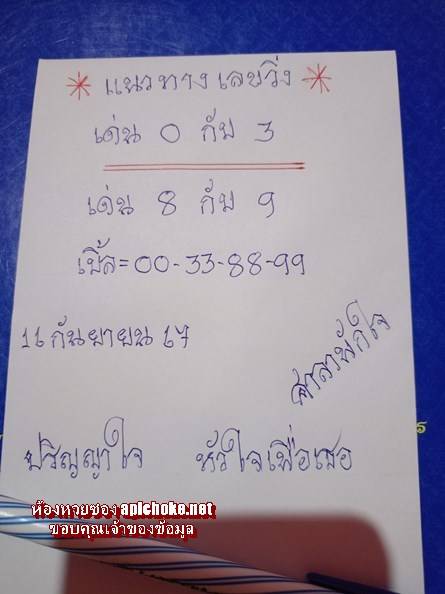 * แนวทางเลขวิ่ง *
เด่น 0 กับ 3
เด่น 8 กับ 9
เบิ้ล=00-33-88-99
16 กันยายน 67
ศาลาพักใจ
ปริญญาใจ หัวใจเพื่อเธอ
ห้องหวยซอง apichoke.net
ขอบคุณเจ้าของข้อมูล